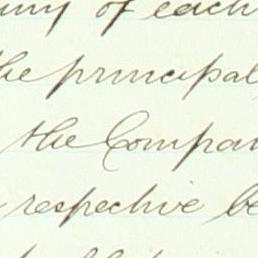 of each
the principal
the Compan
respective be